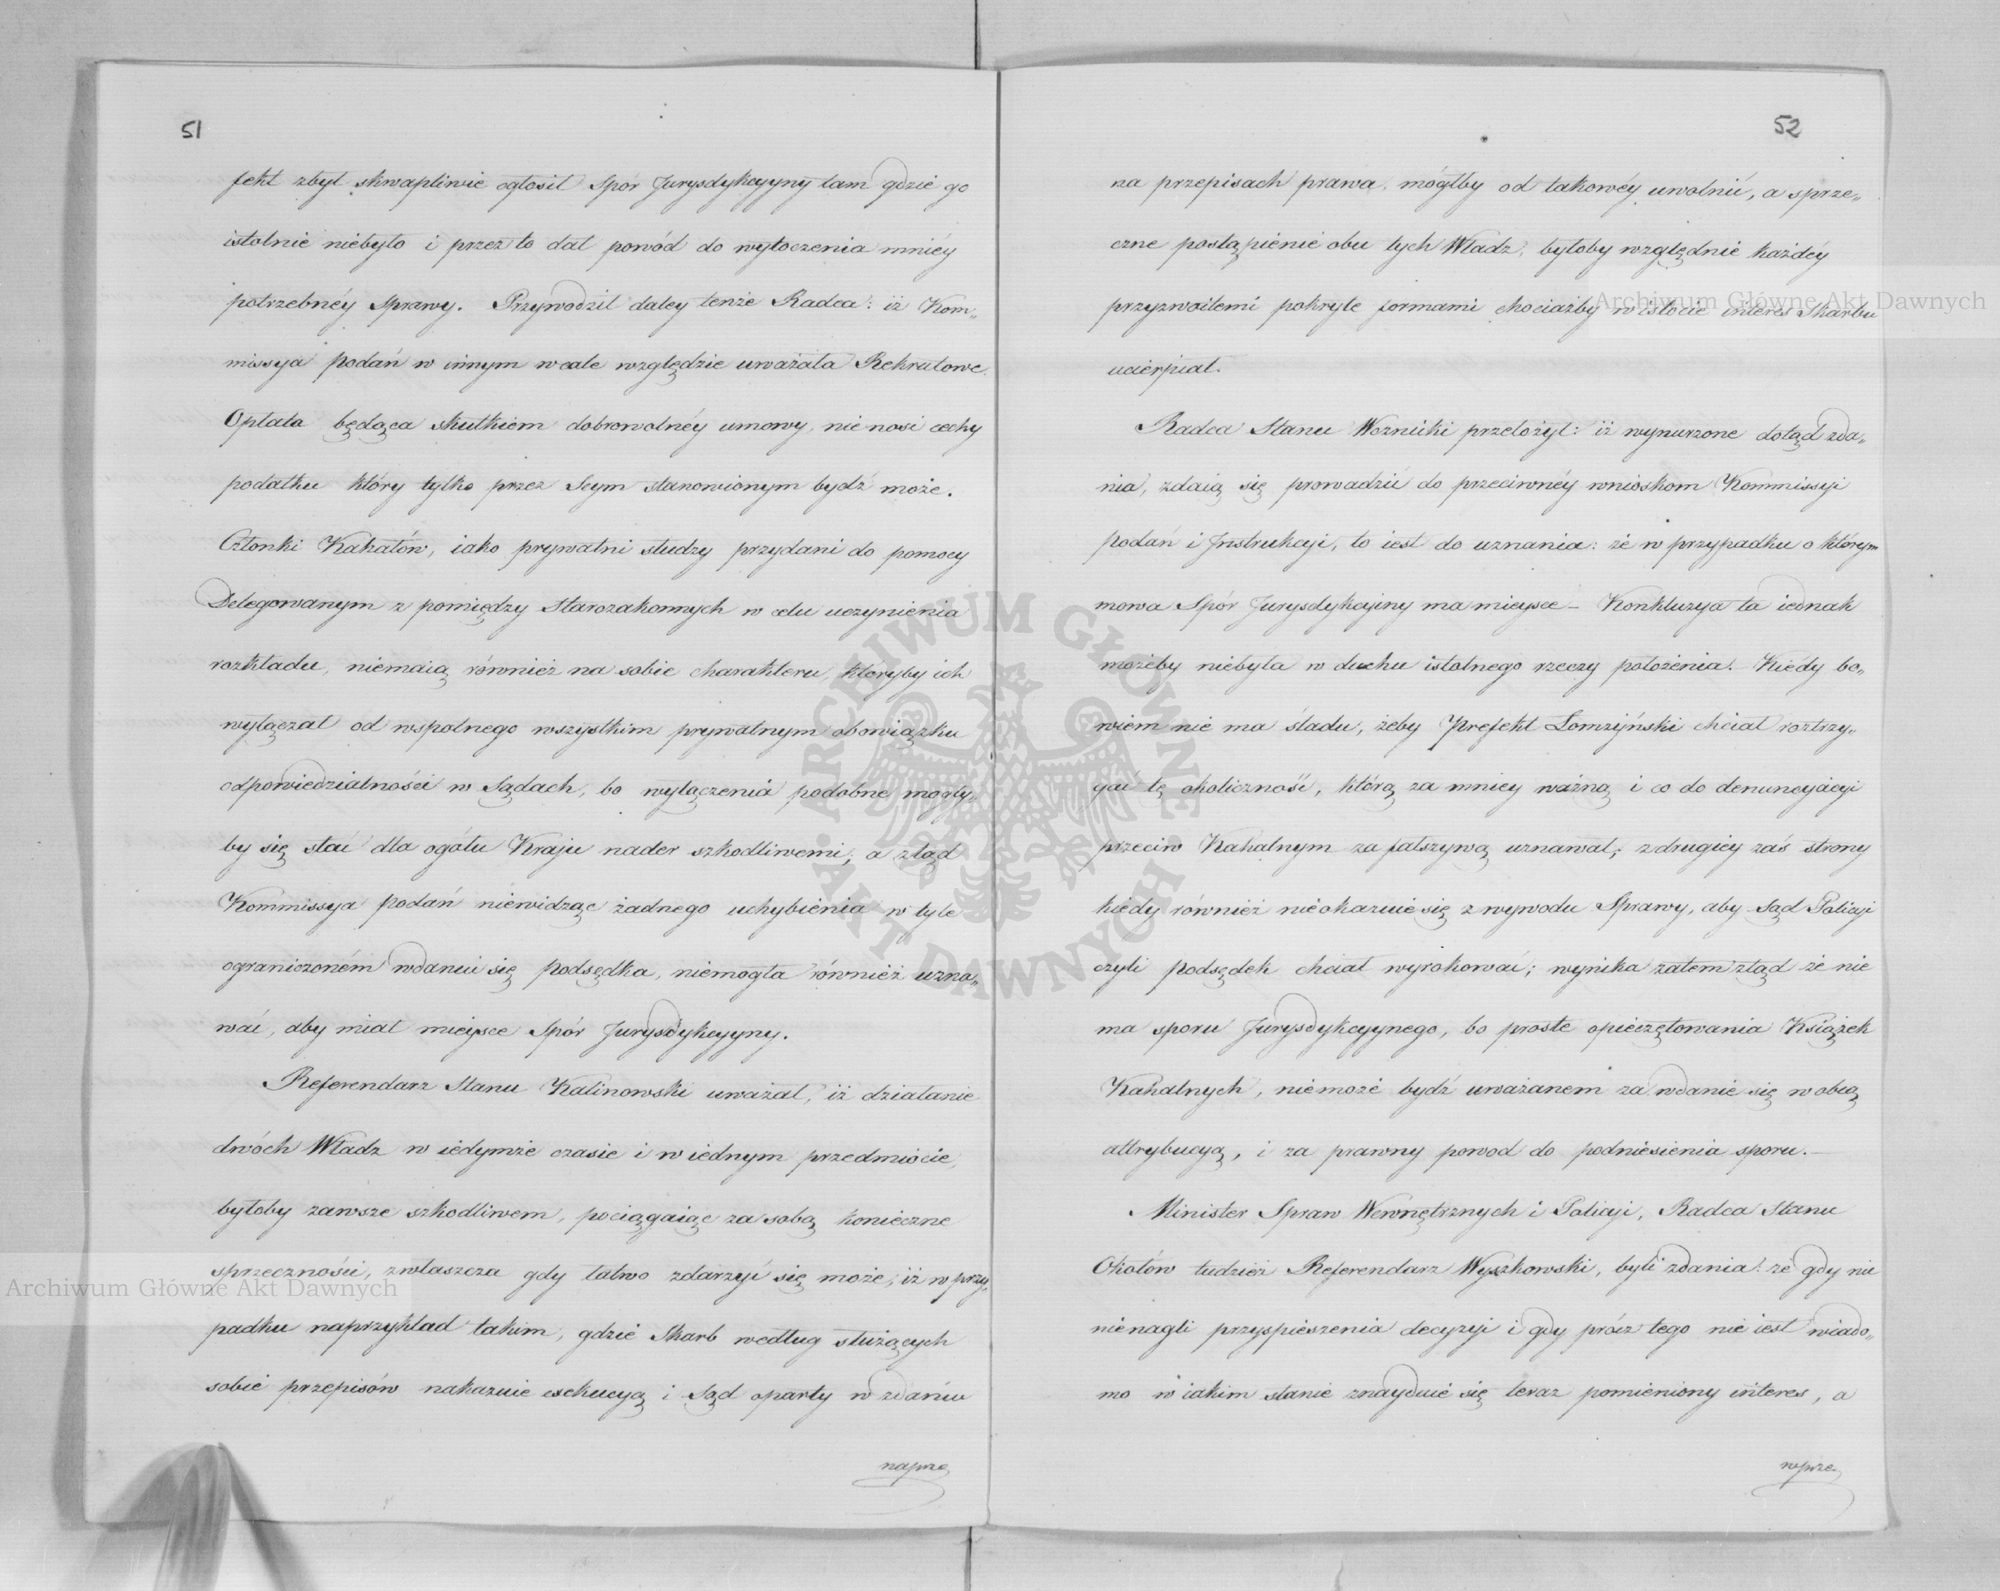 51
fekt zbyt skwapliwie ogłosił Spór Jurysdykcyyny tam gdzie go
istotnie niebyło i przez to dał powód do wytoczenia mniéy
potrzebnéy Sprawy. Przywodził daley tenże Radca: iż Kom„
missya podań w innym wcale względzie uważała Rekrutowe.
Opłata będąca skutkiem dobrowolnéy umowy, nie nosi cechy
podatku który tylko przez Seym stanowionym bydź może.
Członki Kahałów, iako prywatni słudzy przydani do pomocy
Delegowanym z pomiędzy Starozakonnych w celu uczynienia
rozkładu, niemaią również na sobie charakteru, któryby ich
wyłączał od wspólnego wszystkim prywatnym obowiązku
odpowiedzialności w Sądach, bo wyłączenia podobne mogły„
by się stać dla ogółu Kraju nader szkodliwemi, a ztąd
Kommissya podań niewidząc żadnego uchybienia w tyle
ograniczoném wdaniu się podsędka, niemogła również uzna„
wać, aby miał mieysce Spór Jurysdykcyyny.
Referendarz Stanu Kalinowski uważał, iż działanie
dwóch Władz w iedymże czasie i w iednym przedmiocie,
byłoby zawsze szkodliwem, pociągaiąc za sobą konieczne
sprzeczności, zwłaszcza gdy łatwo zdarzyć się może, iż w przy„
padku naprzykład takim, gdzie Skarb według służących
sobie przepisów nakazuie exekucyą i Sąd oparty w zdaniu
naprze
52
na przepisach prawa, mógłby od takowéy uwolnić, a sprze„
czne postąpienie obu tych Władz, byłoby względnie każdéy
przyzwoitemi pokryte formami chociażby w istocie interes Skarbu
ucierpiał.
Radca Stanu Woznicki przełożył: iż wynurzone dotąd zda„
nia, zdaią się prowadzić do przeciwnéy wnioskom Kommissyi
podań i Instrukcyi, to iest do uznania: że w przypadku o którym
mowa Spór Jurysdykcyiny ma mieysce – Konkluzya ta iednak
możeby niebyła w duchu istotnego rzeczy położenia. Kiedy bo„
wiem nie ma śladu, żeby Prefekt Łomżyński chciał roztrzy„
gać tę okoliczność, którą za mniey ważną i co do denuncyacyi
przeciw Kahalnym za fałszywą uznawał; z drugiey zaś strony
kiedy również nie okazuie się z wywodu Sprawy, aby Sąd Policyi
czyli podsędek chciał wyrokować; wynika zatem ztąd że nie
ma sporu Jurysdykcyynego, bo proste opieczętowania Książek
Kahalnych, niemoże bydź uważanem za wdanie się w obcą
attrybucyą, i za prawny powod do podniesienia sporu. –
Minister Spraw Wewnętrznych i Policyi, Radca Stanu
Okołów tudzież Referendarz Wyszkowski, byli zdania: że gdy nic
nienagli przyspieszenia decyzyi i gdy prócz tego nie iest wiado„
mo w iakim stanie znayduie się teraz pomieniony interes, a
wprze
Archiwum Główne Akt Dawnych
Archiwum Główne Akt Dawnych
ARCHIWUM GŁÓWNE AKT DAWNYCH